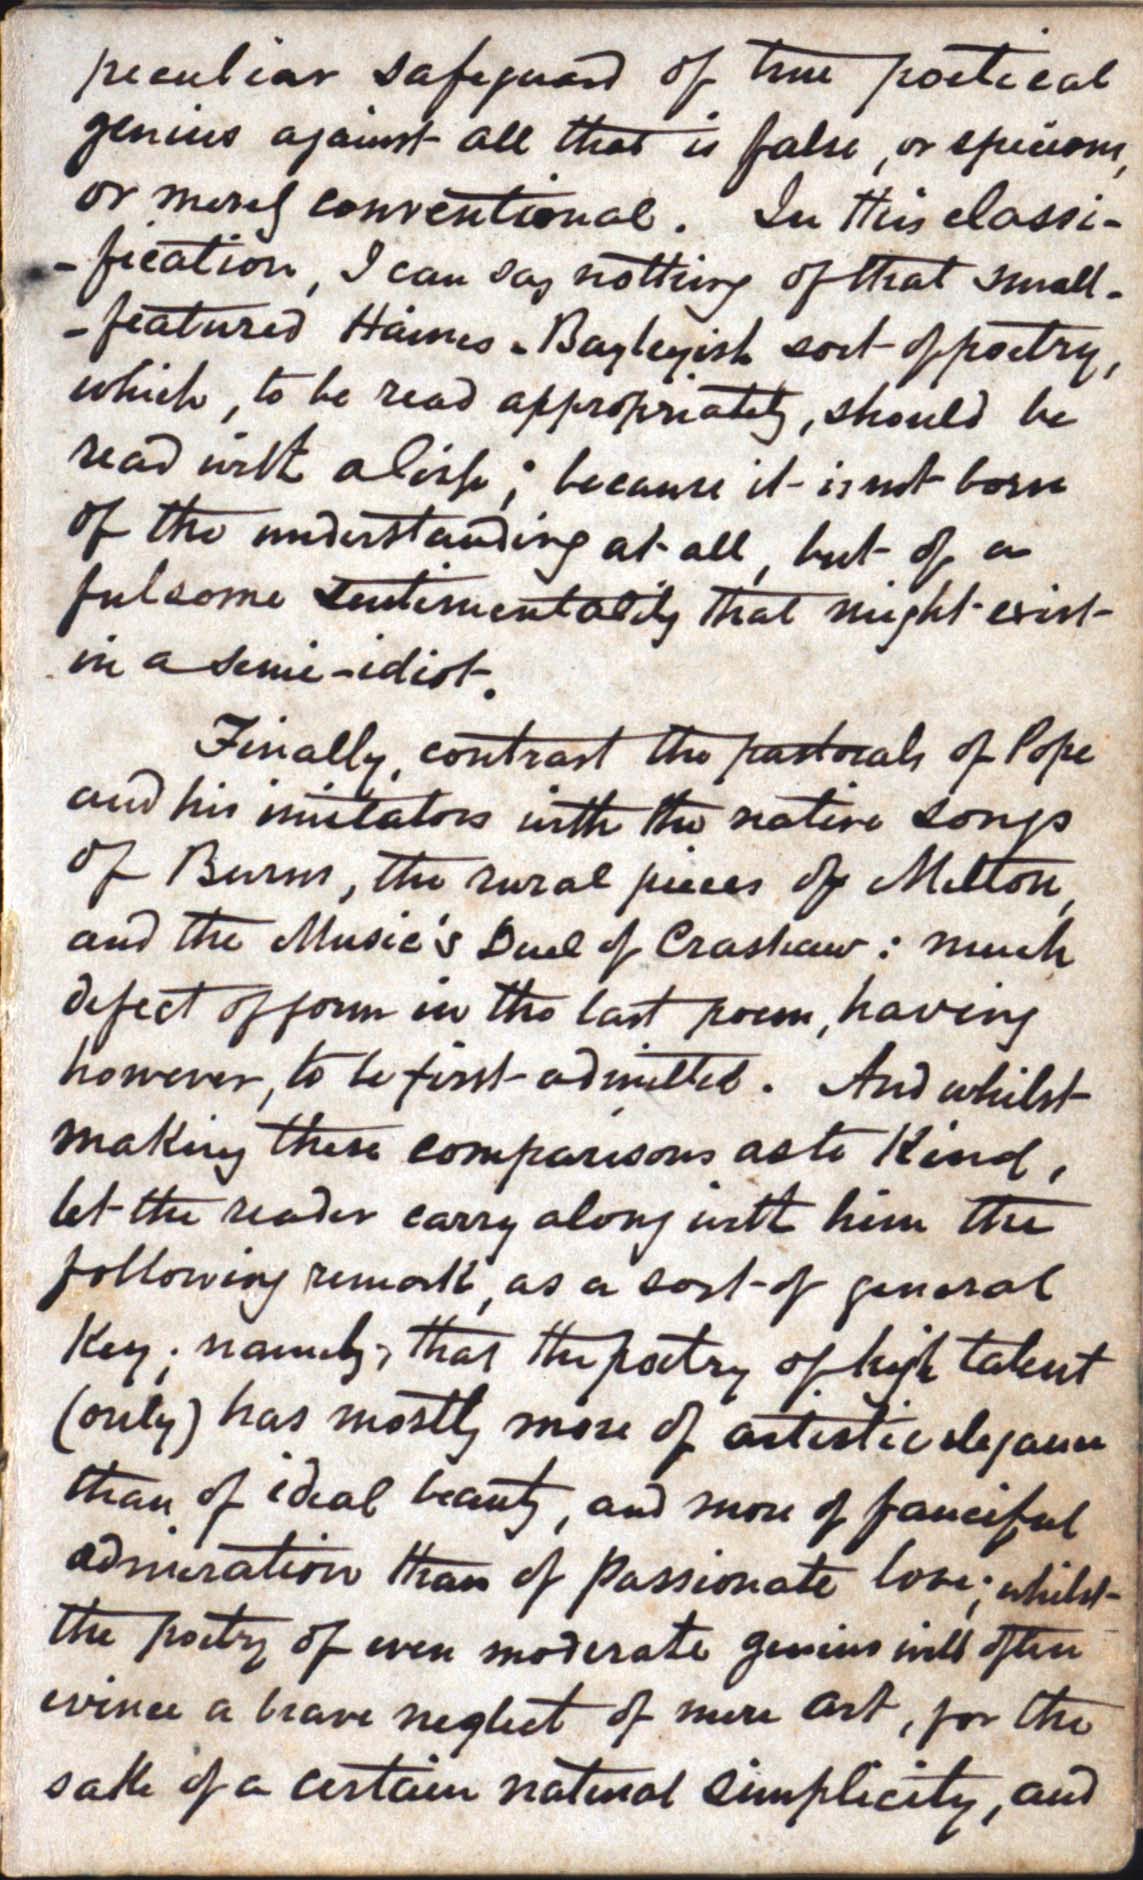 peculiar safeguard of true poetical
genius against all that is false, or specious,
or merely conventional. In this classi-
-fication, I can say nothing of that small-
-featured Haines-Bayleyish sort of poetry,
which, to be read appropriately, should be
read with a lisp; because it is not born
of the understanding at all, but of a
fulsome sentimentality that might exist
in a semi-idiot.
Finally, contrast the pastorals of Pope
and his imitators with the native songs
of Burns, the rural pieces of Milton,
and the Music's Duel of Crashaw: much
defect of form in the last poem, having
however, to be first admitted. And whilst
making these comparisons as to Kind,
let the reader carry along with him the
following remark, as a sort of general
Key; namely, that the poetry of high talent
(only) has mostly more of artistic elegance
than of ideal beauty, and more of fanciful
admiration than of passionate love; whilst
the poetry of even moderate genius will often
evince a brave neglect of mere art, for the
sake of a certain natural simplicity, and